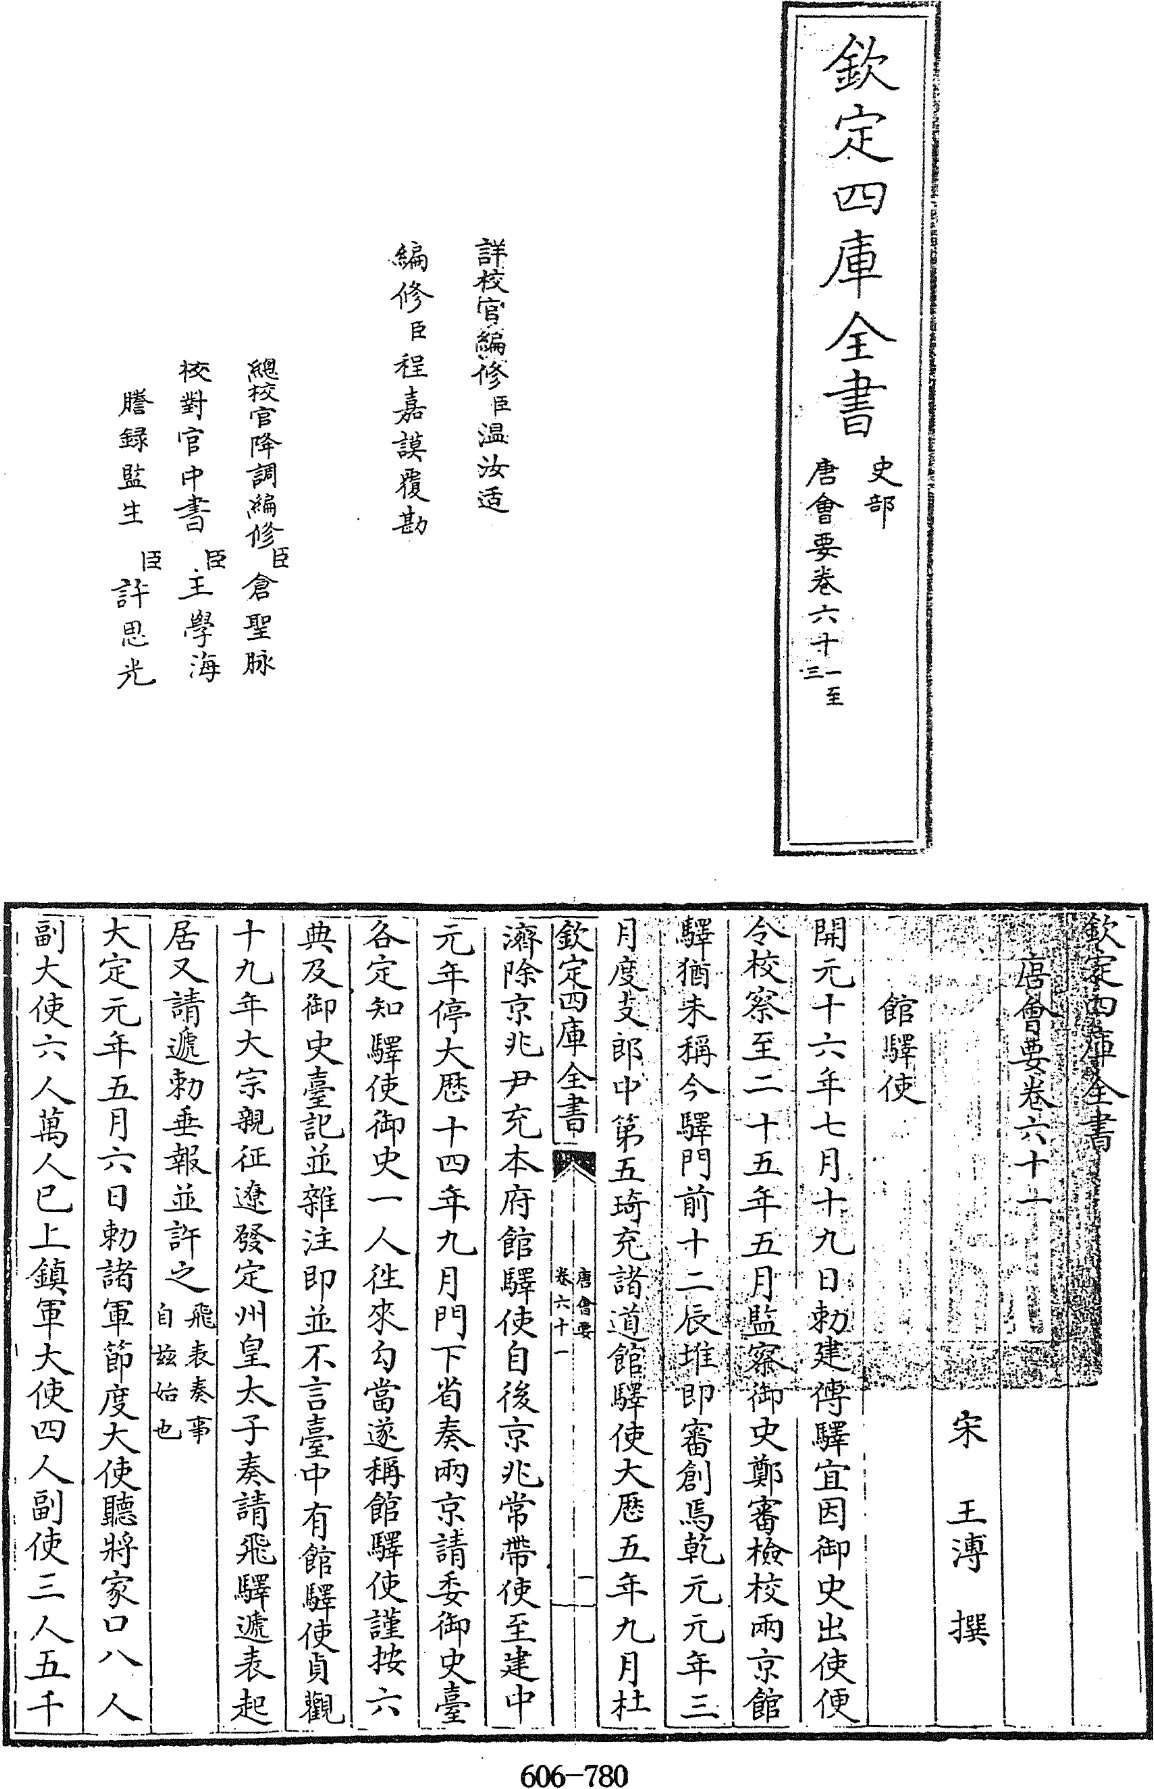 欽定四庫全書
史部
唐會要卷六十一至
三
詳校官編修臣温汝适
編修臣程嘉謨覆勘
總校官降調編修臣倉聖脉
校對官中書臣王學海
謄録監生臣許思光
欽定四庫全書
唐會要卷六十一
宋王溥撰
館驛使
開元十六年七月十九日勅建傳驛宜因御史出使便
令校察至二十五年五月監察御史鄭審檢校兩京館
驛猶未稱今驛門前十二辰堆即審創焉乾元元年三
月度支郎中第五琦充諸道館驛使大歷五年九月杜
欽定四庫全書
唐會要
卷六十一
一
濟除京兆尹充本府館驛使自後京兆常帶使至建中
元年停大歷十四年九月門下省奏兩京請委御史臺
各定知驛使御史一人往來勾當遂稱館驛使謹按六
典及御史臺記並雜注即並不言臺中有館驛使貞觀
十九年大宗親征遼發定州皇太子奏請飛驛遞表起
居又請遞勅垂報並許之飛表奏事
自兹始也
大定元年五月六日勅諸軍節度大使聽將家口八人
副大使六人萬人已上鎮軍大使四人副使三人五千
606-780